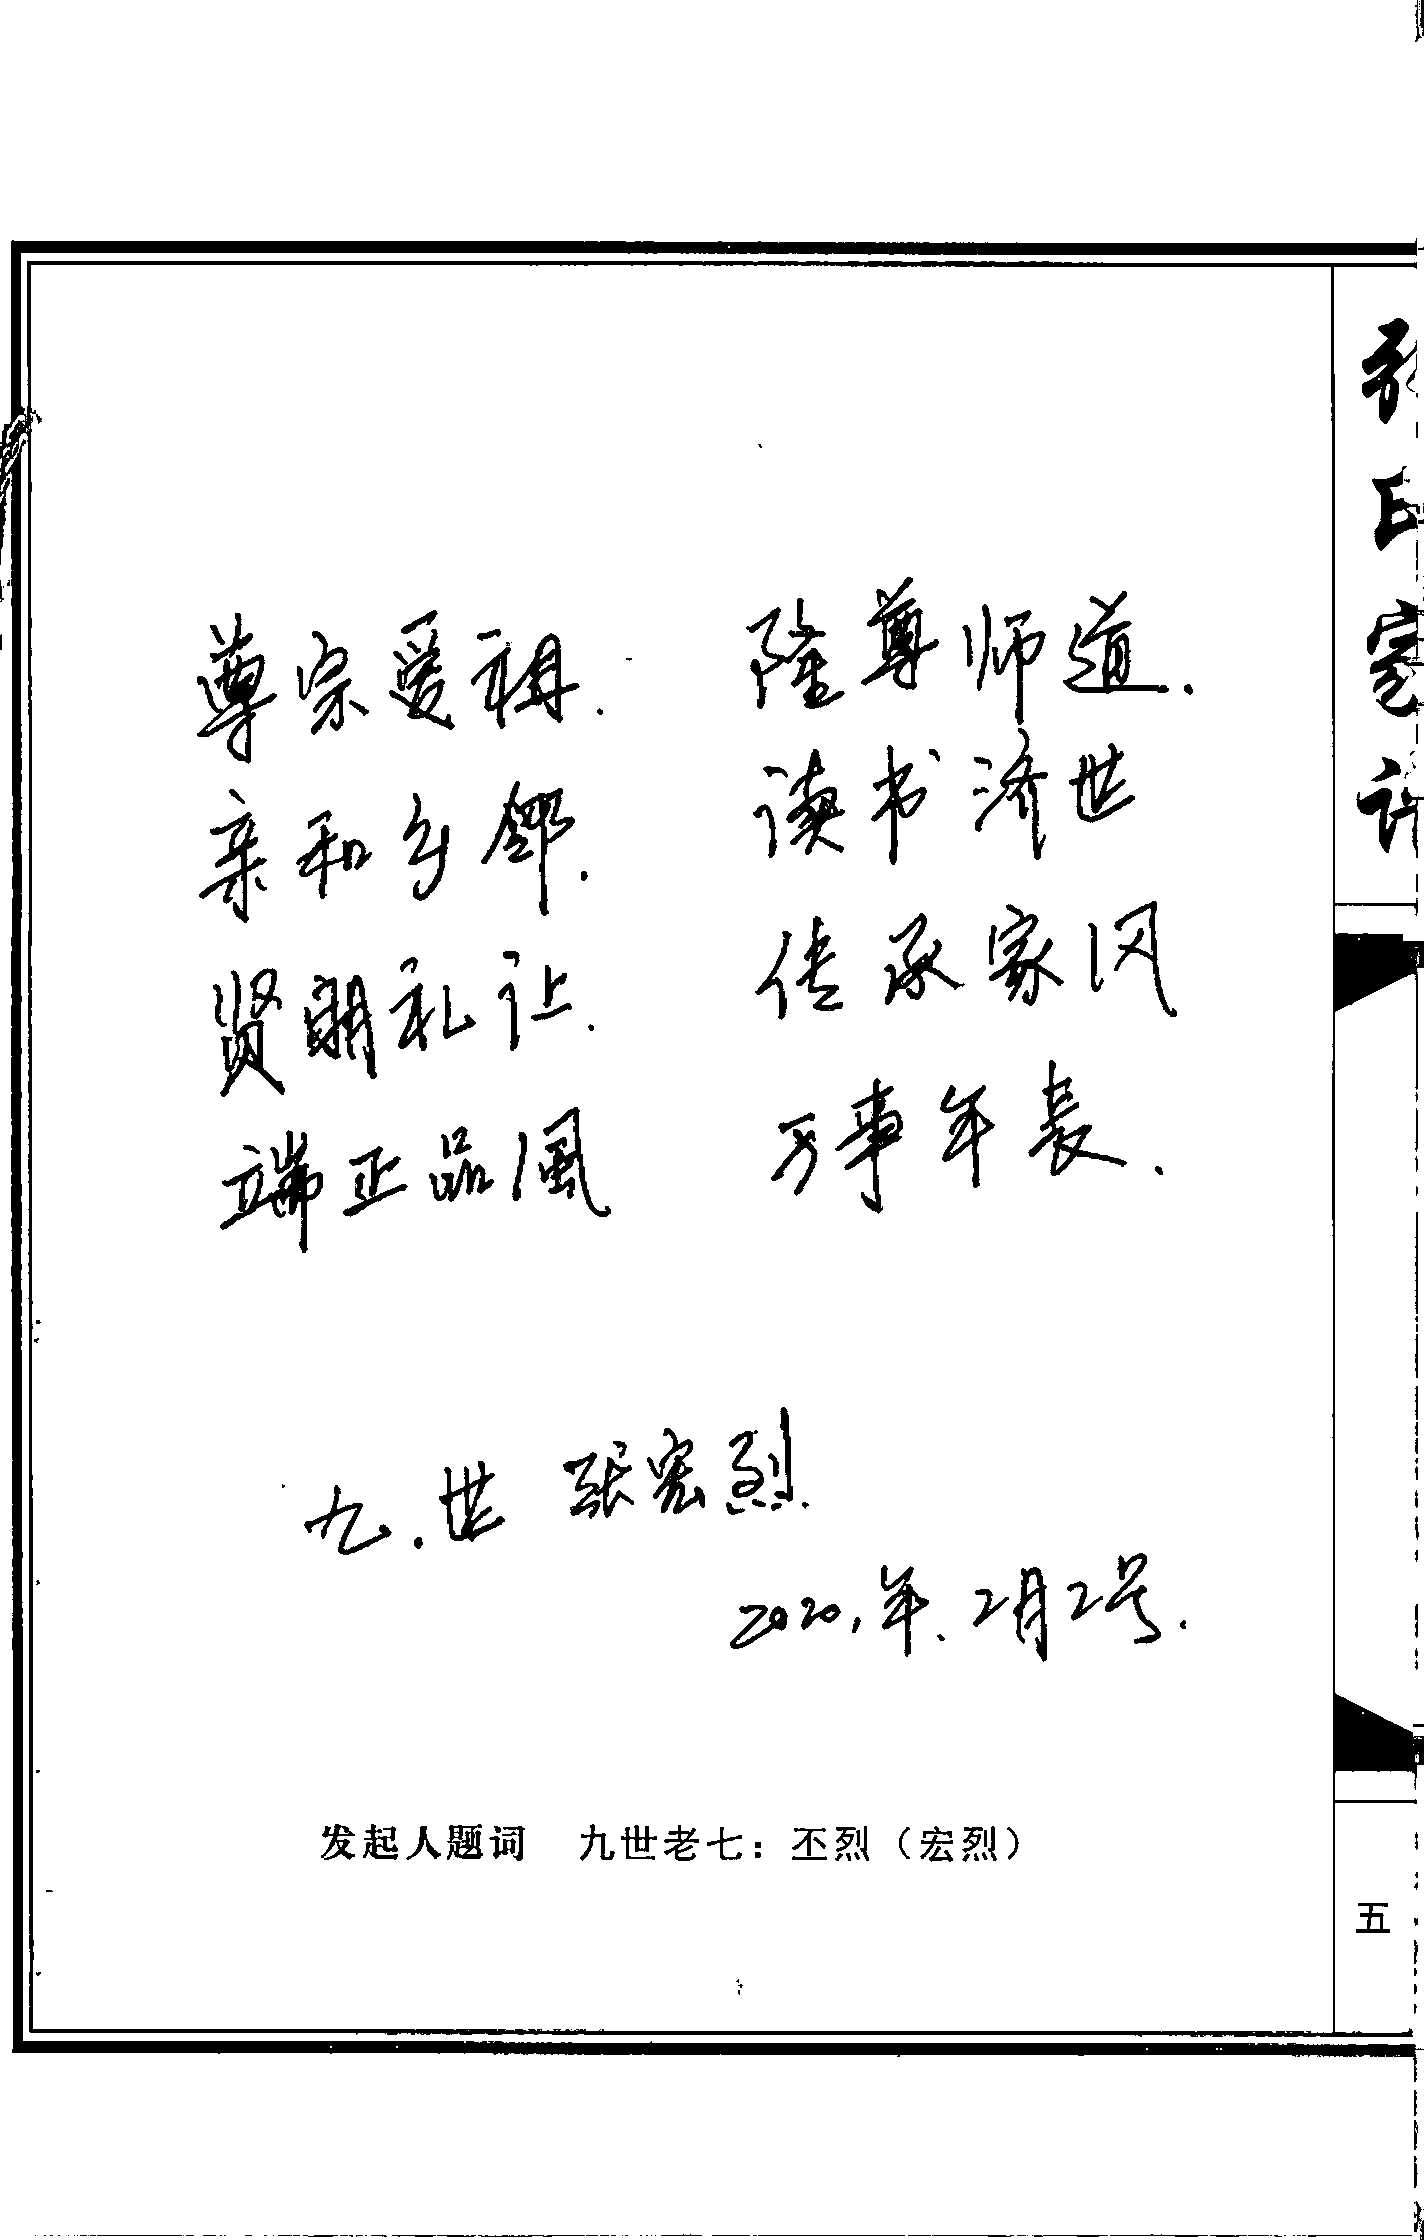 尊宗爱祖. 隆尊师道.
亲和乡邻. 读书济世
贤明礼让. 传承家风
端正品風 万事年长.
九.世 张宏烈
2020.年.2月2号.
发起人题词 九世老七：丕烈（宏烈）
五